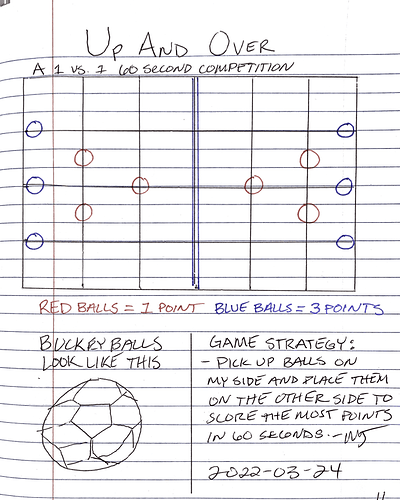 UP AND OVER
A 1 VS. 1 60 SECOND COMPETITION
RED BALLS = 1 POINT BLUE BALLS = 3 POINTS
BUCKEY BALLS
LOOK LIKE THIS
GAME STRATEGY:
- PICK UP BALLS ON
MY SIDE AND PLACE THEM
ON THE OTHER SIDE TO
SCORE THE MOST POINTS
IN 60 SECONDS.
2022-03-24
11